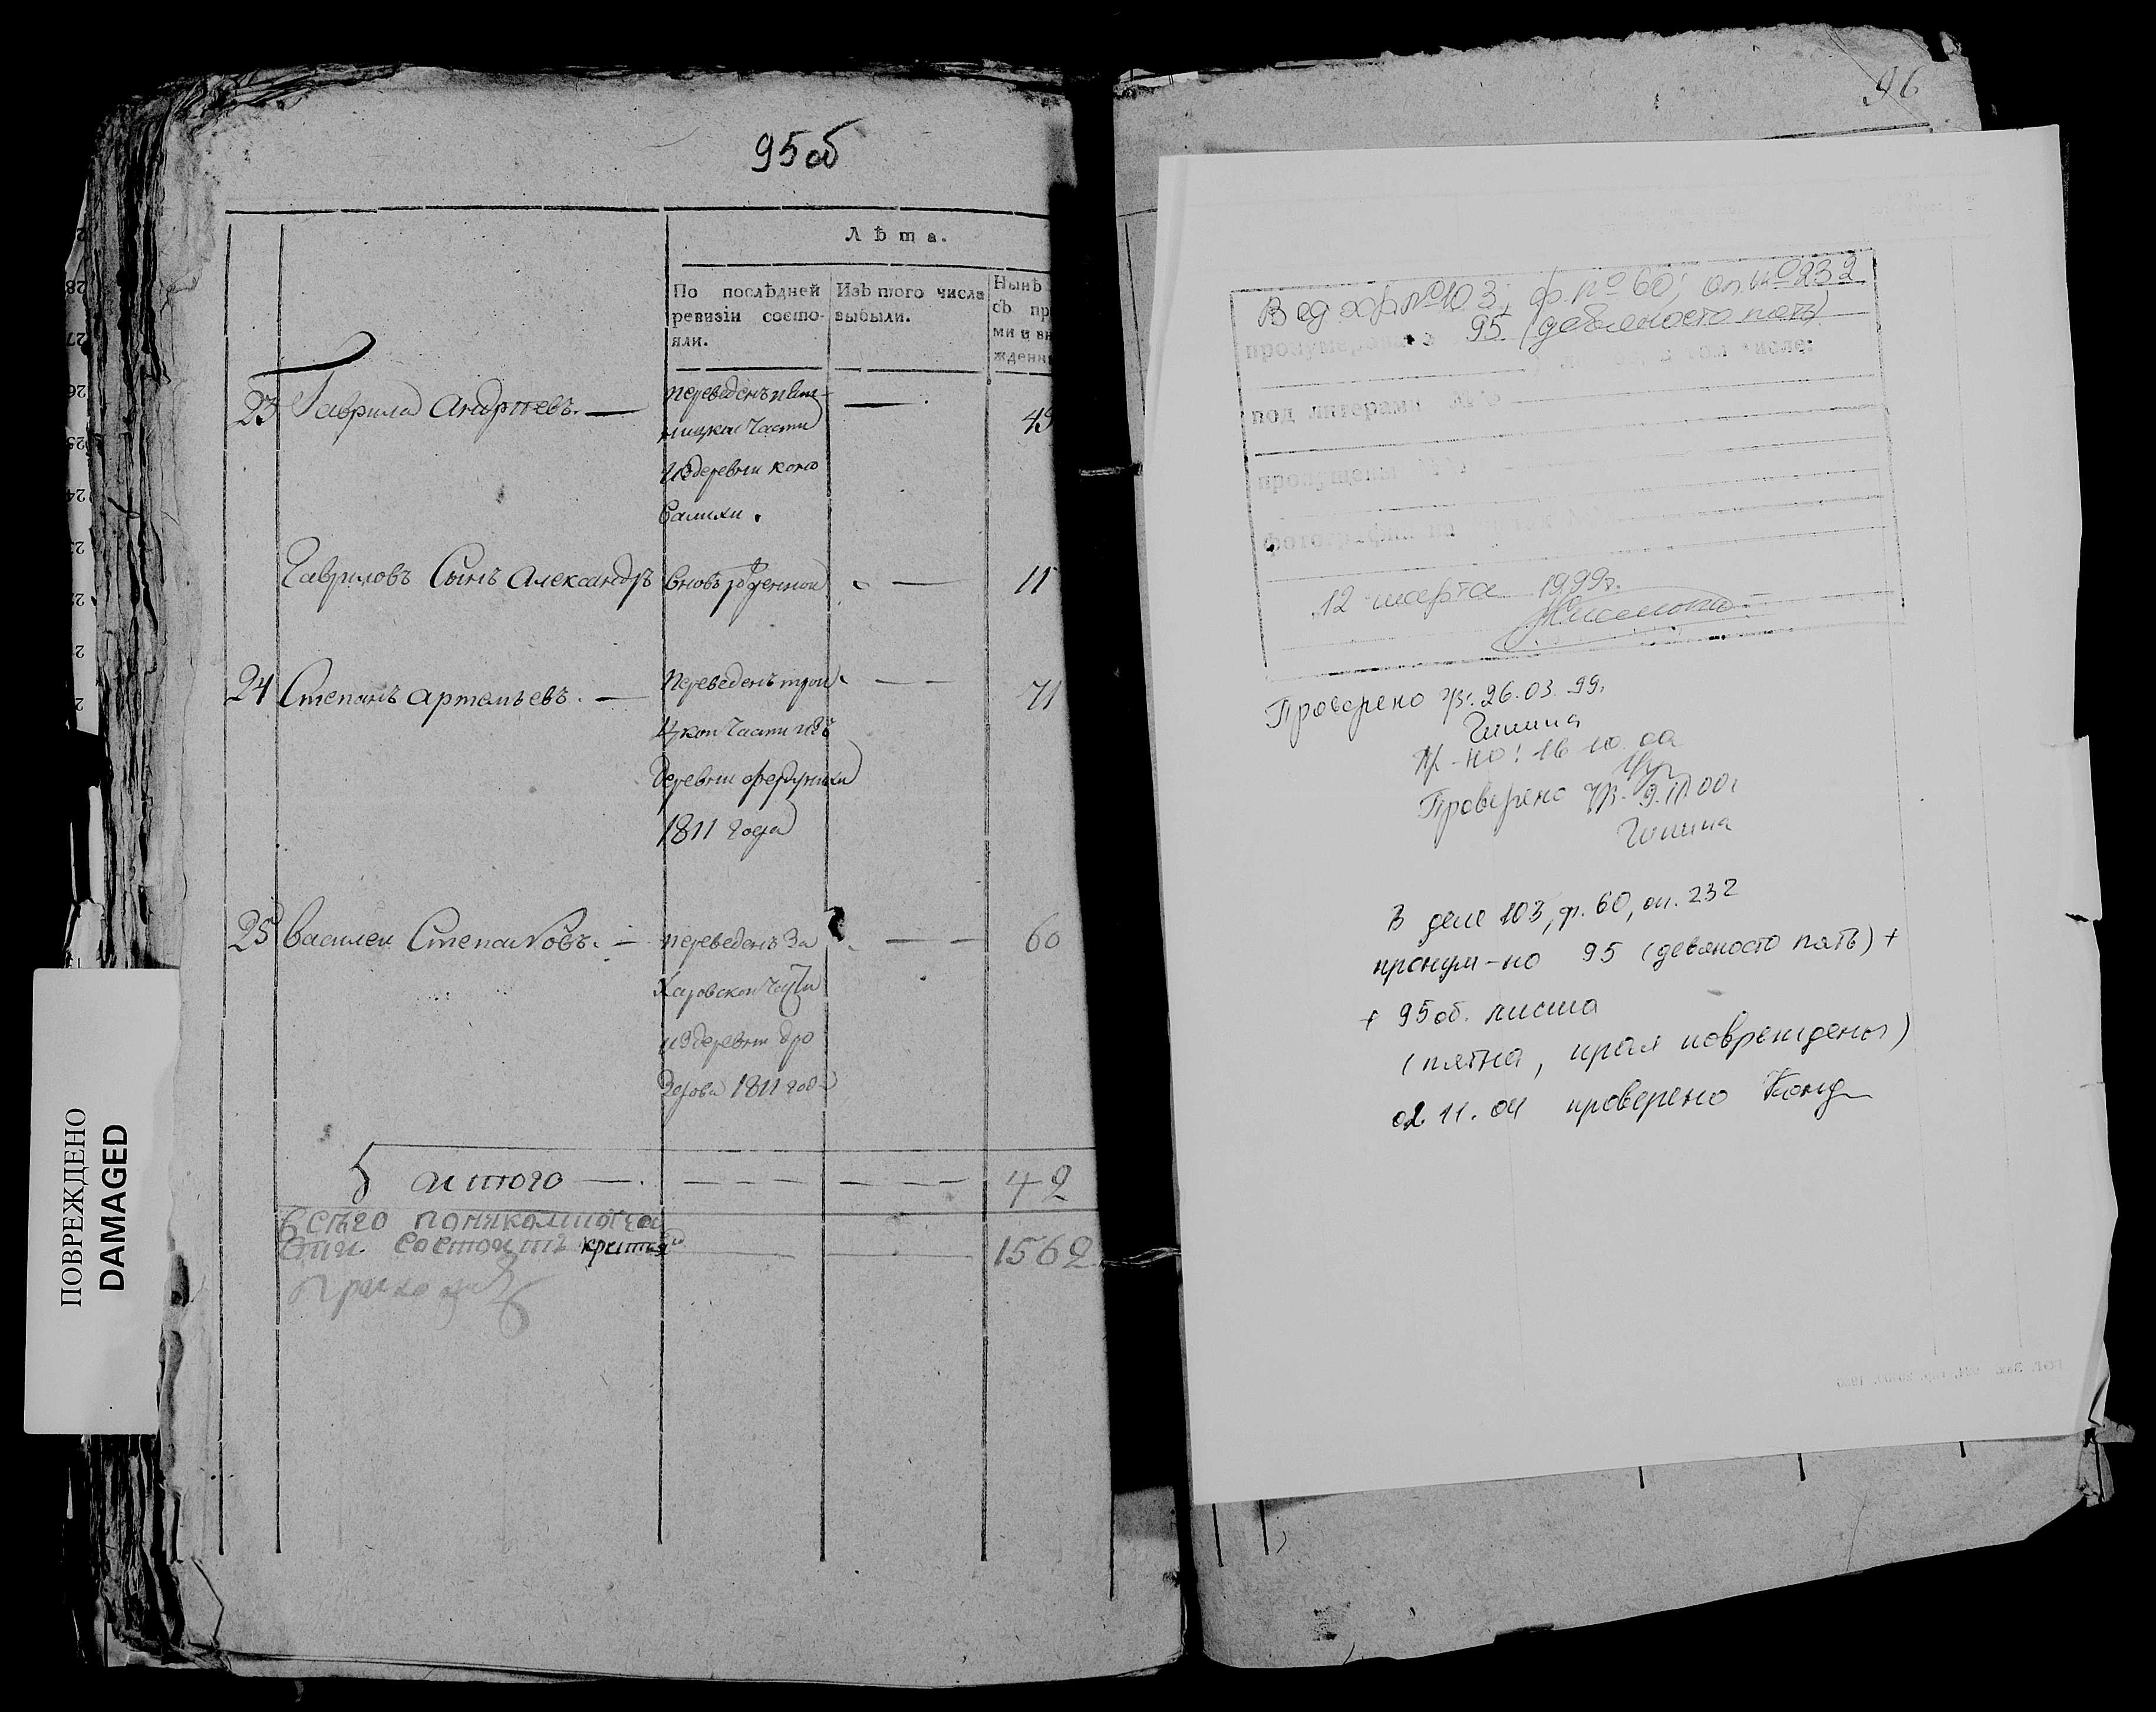 95об
Лѣта.
По послѣдней
ревизіи состо-
яли.
Изъ того числа
выбыли.
Нынѣ
съ пр
ми и вн
жденн
23 Гаврила Андреевъ. —
переведенъ
ницкой части
из деревни коно
валихи.
— 49
Гавриловъ Сынъ Александръ
вновь рожденной
— 11
24 Степанъ артемьевъ. —
переведенъ трои
цкой части изъ
деревни федурнихи
1811 года
— — 71
25 Василеи Степановъ. —
переведенъ За
Харовской части
из деревни дро
здова 1811 года
— — 60
а итого — — — — — — — 42
Всѣго
состоитъ крестья
1562
ПОВРЕЖДЕНО
DAMAGED
96
В ед хр №103, ф. № 60; оп. №232
пронумеровано 95 (девяносто пять)
листов в том числе:
под литерами №№
пропущены №№
фотографии на листах №№
12 марта 1999г.
Проверено 26.03.99.
Пр-но: 16 10 00
Проверено 9.11.00г
В деле 103, ф. 60, оп. 232
пронум-но 95 (девяносто пять) +
+ 95об. листа
(пятна, края повреждены)
02.11.04 проверено